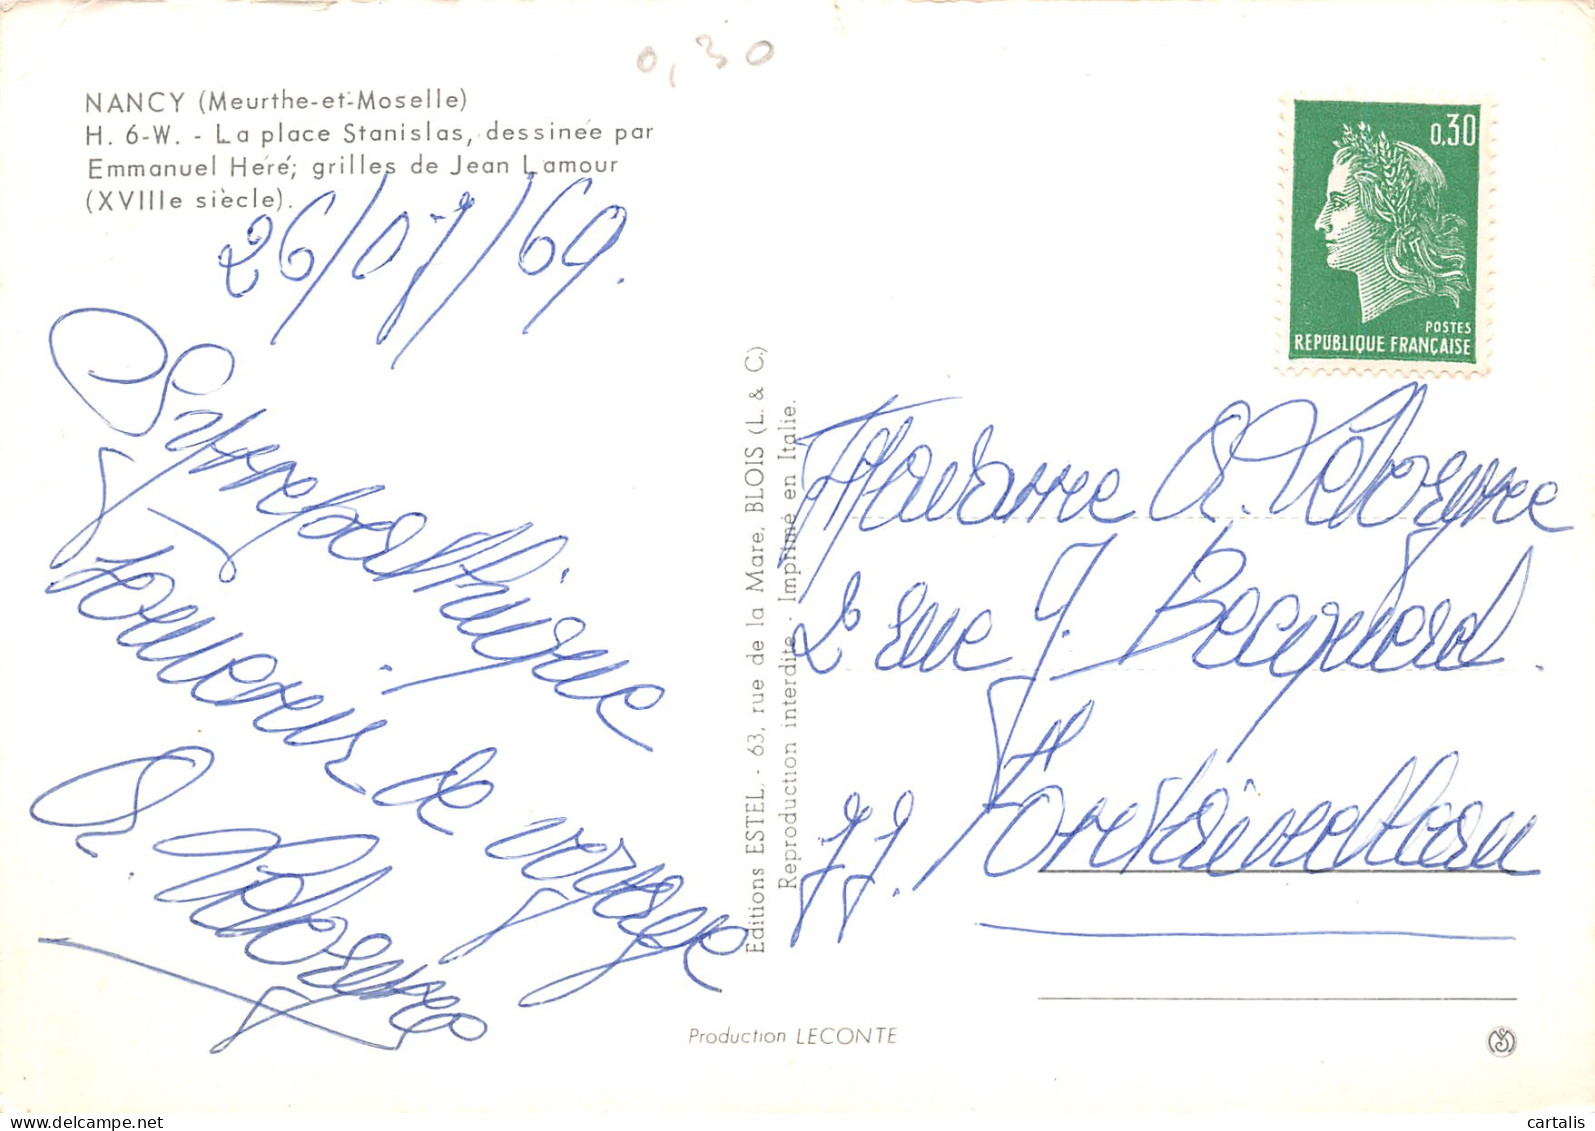 0,30
NANCY (Meurthe-et-Moselle)
H. 6-W. - La place Stanislas, dessinée par
Emmanuel Héré; grilles de Jean Lamour
(XVIIIe siècle).
26/07/69.
Sympathique
souvenir de
voyage
0,30
POSTES
REPUBLIQUE FRANÇAISE
Editions ESTEL. - 63, rue de la Mare, BLOIS (L. & C.)
Reproduction interdite - Imprimé en Italie.
Madame
2 rue J. Becquerel.
77. Fontainebleau
Production LECONTE
cartalis